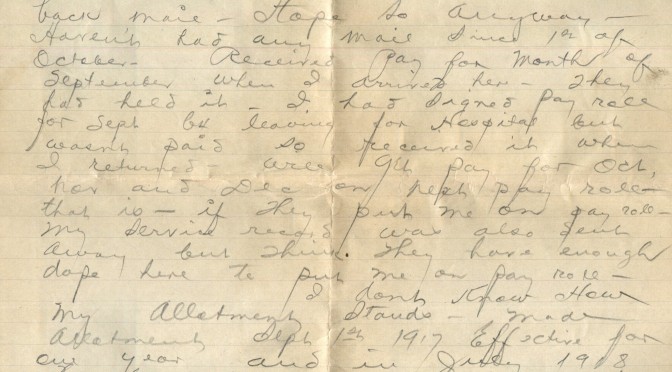 back mail - Hope so anyway -
Haven't had any mail since 1st of
October - Received Pay for Month of
September when I arrived here - They
had held it - I had signed Pay role
for Sept b4 leaving for Hospital but
wasn't paid so received it when
I returned will get pay for Oct,
Nov and Dec on next pay role -
that is - if they put me on pay role -
My service record was also sent
away but think they have enough
dope here to put me on pay role -
I dont Know How
My Allotment Stands - Made
Allotment Sept 1st 1917 Effective for
one year and in July 1918